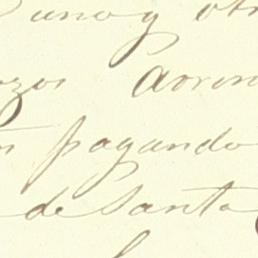 uno y otr
zos arren
pagando
de Santa